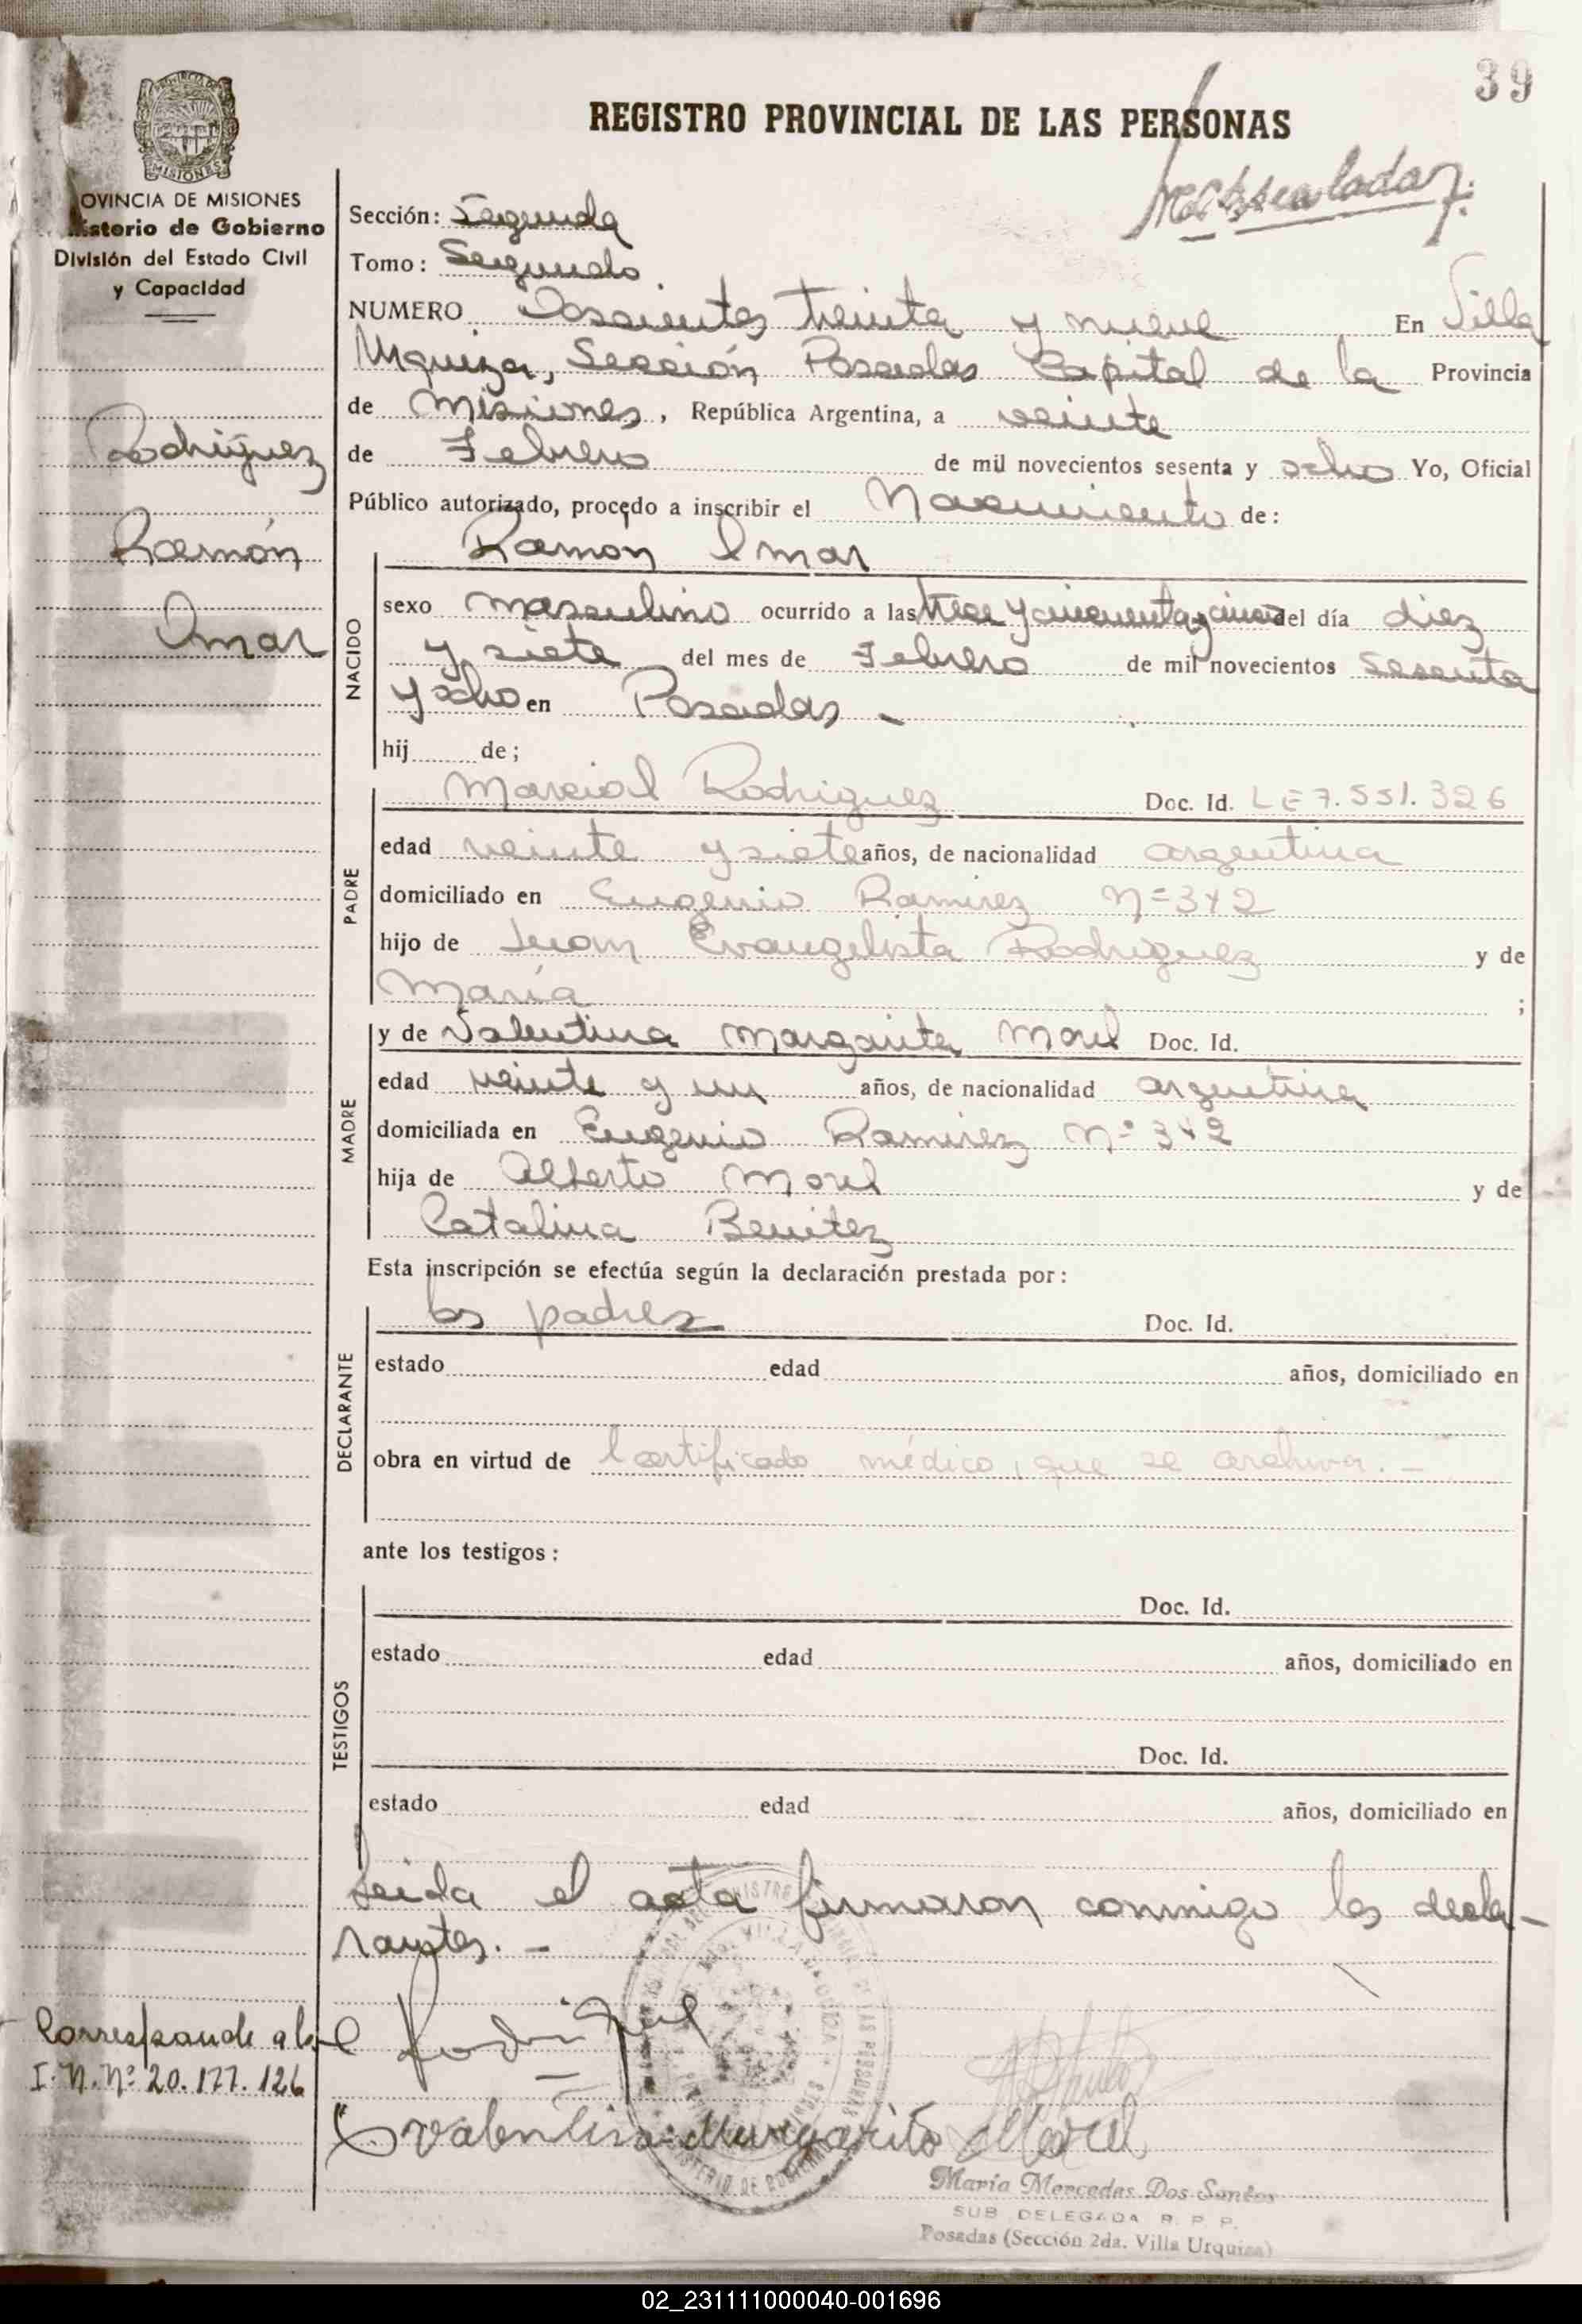 39
REGISTRO PROVINCIAL DE LAS PERSONAS
MISIONES
OVINCIA DE MISIONES
isterio de Gobierno
División del Estado Civil
y Capacidad
Sección: Segunda
Tomo: Segundo
NUMERO Doscientos treinta y nueve En Villa
Urquiza, Sección Posadas Capital de la Provincia
de Misiones, República Argentina, a veinte
de Febrero de mil novecientos sesenta y ocho Yo, Oficial
Público autorizado, procedo a inscribir el Nacimiento de:
Rodriguez
Ramón
Omar
NACIDO
Ramón Omar
sexo masculino ocurrido a las trece y cincuenta y cinco del día diez
y siete del mes de Febrero de mil novecientos sesenta
y ocho en Posadas -
hij de;
PADRE
Marcial Rodriguez Doc. Id. LE 7.551.326
edad veinte y siete años, de nacionalidad argentina
domiciliado en Eugenio Ramirez Nº 342
hijo de Juan Evangelista Rodriguez y de
María ;
MADRE
y de Valentina Margarita Morel Doc. Id.
edad veinte y un años, de nacionalidad argentina
domiciliada en Eugenio Ramirez Nº 342
hija de Alberto Morel y de
Catalina Benitez
Esta inscripción se efectúa según la declaración prestada por:
DECLARANTE
los padres Doc. Id.
estado edad años, domiciliado en
obra en virtud de Certificado médico, que se archiva. -
ante los testigos:
TESTIGOS
Doc. Id.
estado edad años, domiciliado en
Doc. Id.
estado edad años, domiciliado en
Leida el acta firmaron conmigo los decla-
rantes. -
Corresponde a la
I. N. Nº 20.177.126
Rodriguez
Valentina Margarita Morel
María Mercedes Dos Santos
SUB DELEGADA R. P. P.
Posadas (Sección 2da. Villa Urquiza)
02_231111000040-001696